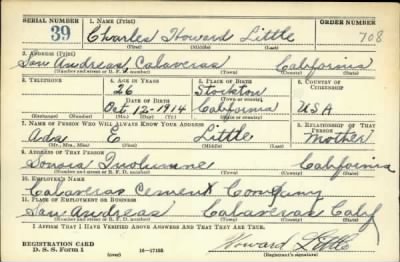 SERIAL NUMBER 1. NAME (Print) ORDER NUMBER
39 Charles Howard Little 708
(First) (Middle) (Last)
2. ADDRESS (Print)
San Andreas Calaveras California
(Number and street or R. F. D. number) (Town) (County) (State)
3. TELEPHONE 4. AGE IN YEARS 5. PLACE OF BIRTH 6. COUNTRY OF CITIZENSHIP
26 Stockton
DATE OF BIRTH (Town or county)
Oct 12-1914 California USA
(Exchange) (Number) (Mo.) (Day) (Yr.) (State or country)
7. NAME OF PERSON WHO WILL ALWAYS KNOW YOUR ADDRESS 8. RELATIONSHIP OF THAT PERSON
Ada E Little Mother
(Mr., Mrs., Miss) (First) (Middle) (Last)
9. ADDRESS OF THAT PERSON
Sonora Tuolumne California
(Number and street or R. F. D. number) (Town) (County) (State)
10. EMPLOYER'S NAME
Calaveras Cement Company
11. PLACE OF EMPLOYMENT OR BUSINESS
San Andreas Calaveras Calif
(Number and street or R. F. D. number) (Town) (County) (State)
I AFFIRM THAT I HAVE VERIFIED ABOVE ANSWERS AND THAT THEY ARE TRUE.
REGISTRATION CARD Howard Little
D. S. S. Form 1 16-17105 (Registrant's signature)